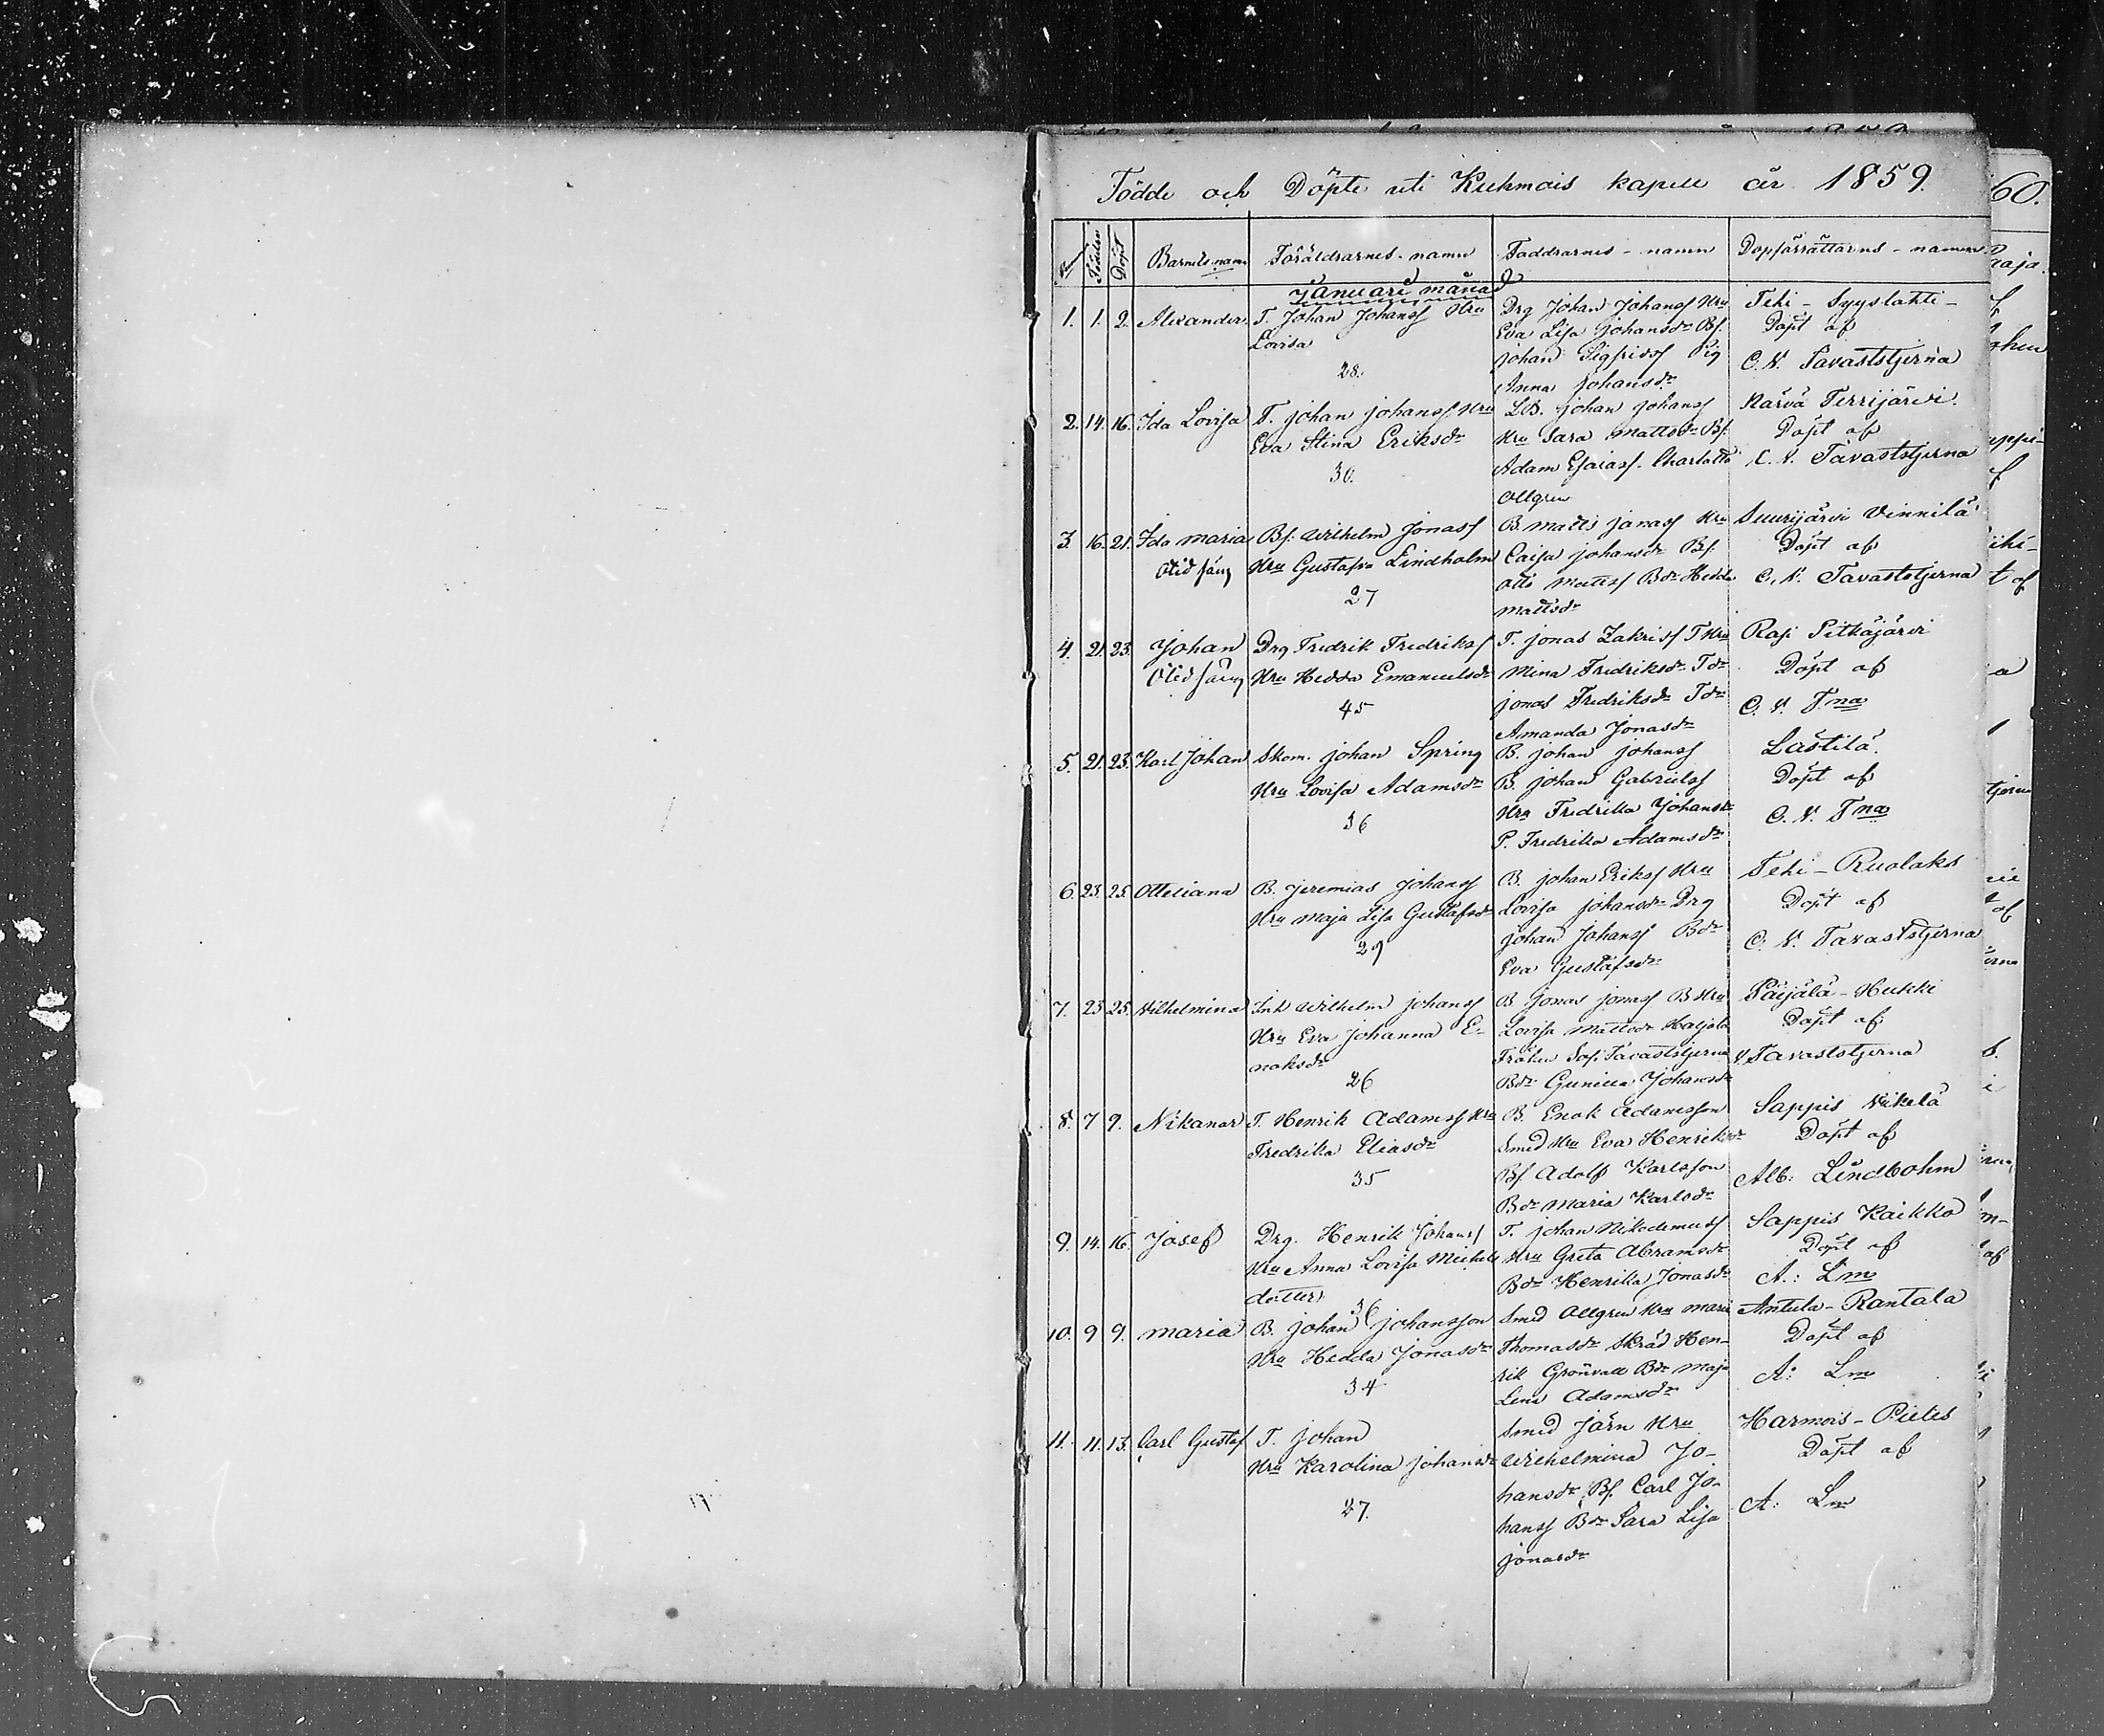 Födde och Döpte uti Kuhmois kapell år 1859.
Num Födelse Döpt Barnets namn Föräldrarnes namn Faddrarnes - namn Dopförrättarens - namn
Januari månad
1. 1. 2. Alexander. T. Johan Johansf Hru
Lovisa
28.
Drg Johan Johansf Hru
Eva Lisa Johansdr Bf.
Johan Sigfridsf Pig
Anna Johansdr
Tehi - Syyslahti -
Döpt af
C. N. Tavaststjerna
2. 14. 16. Ida Lovisa T. Johan Johansf Hru
Eva Stina Eriksdr
30.
LB. Johan Johansf
Hru Sara Mattsdr Bf.
Adam Esaiasf. Charlotta
Ollgren
Kärvä Terrijärvi.
Döpt af
C. N. Tavaststjerna
3. 16. 21. Ida Maria Bf. Wilhelm Jonasf
Otid säng Hru Gustafva Lindholm
27
B. Matts Jonasf Hru
Caisa Johansdr Bf.
Otto Mattsf Bdr Hedda
Mattsdr
Suurijärvi Vinnilä
Döpt af
C. N. Tavaststjerna
4. 21. 23. Johan Drg Fredrik Fredriksf
Otid säng Hru Hedda Emanuelsdr
45
T. Jonas Zakrisf T Hru
Mina Fredriksdr Tdr
Jonas Fredriksdr Tdr
Amanda Jonasdr
Rasi Pitkäjärvi
Döpt af
C. N. Tna
5. 21. 23. Karl Johan Skom. Johan Spring
Hru Lovisa Adamsdr
36
B. Johan Johansf
B. Johan Gabrielsf
Hru Fredrika Johansdr
P. Fredrika Adamsdr
Lästilä.
Döpt af
C. N. Tna
6. 23. 25. Otteliana B. Jeremias Johansf
Hru Maja Lisa Gustafsdr
29
B. Johan Eriksf Hru
Lovisa Johansdr Drg
Johan Johansf Bdr
Eva Gustafsdr
Tehi - Ruolaks
Döpt af
C. N. Tavaststjerna
7. 23 25. Vilhelmina Inh Wilhelm Johansf
Hru Eva Johanna E-
noksdr
26
B Jonas Jonasf B Hru
Lovisa Mattsdr Harjola
Fröken Sof. Tavaststjerna
Bdr Gunilla Johansdr
Päijälä - Hukki
Döpt af
N. Tavaststjerna
8. 7 9. Nikanor T. Henrik Adamsf Hru
Fredrika Eliasdr
35
B. Enok Adamsson
Smed Hru Eva Henriksdr
Bf Adolf Karlsson
Bdr Maria Karlsdr
Sappis Nikelä
Döpt af
Alb: Lindbohm
9. 14. 16. Josef Drg. Henrik Johansf
Hru Anna Lovisa Michels
dotter
36
T. Johan Nikodemusf
Hru Greta Abramsdr
Bdr Henrika Jonasdr
Sappis Kaikko
Döpt af
A.: Lm
10. 9 9. Maria B. Johan Johansson
Hru Hedda Jonasdr
34
Smed Ollgren Hru Maria
Thomasdr Skräd Hen-
rik Grönvall Bdr Maja
Lena Adamsdr
Antula - Rantala
Döpt af
A: Lm
11. 11. 13. Carl Gustaf T. Johan
Hru Karolina Johansdr
27.
Smed Järn Hru
Wilhelmina Jo-
hansdr Bf. Carl Jo-
hansf Bdr Sara Lisa
Jonasdr
Harmois - Pietis
Döpt af
A: Lm
60.